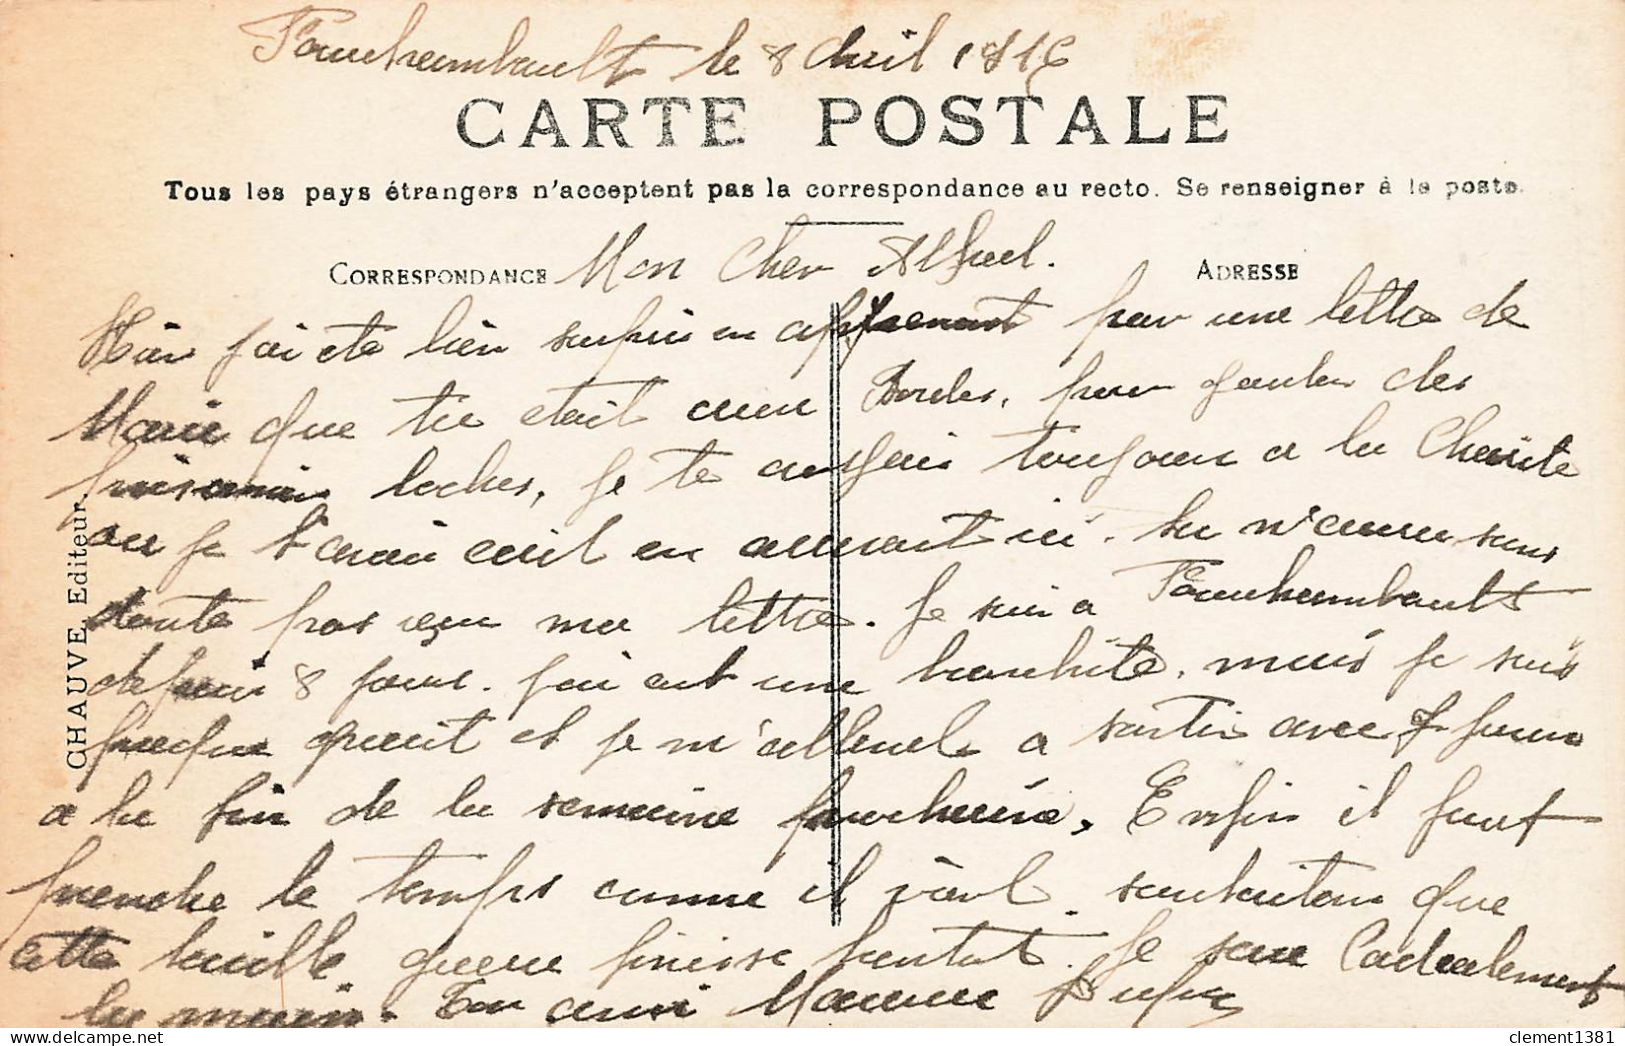 Fourchambault le 8 Avril 1916
CARTE POSTALE
Tous les pays étrangers n'acceptent pas la correspondance au recto. Se renseigner à la poste.
CORRESPONDANCE
ADRESSE
Mon Cher Alfred.
Hier j'ai ete bien surpris en apprenant par une lettre de
Marie que tu etait aux Bordes, pour garder des
prisonnier boches, je te croyais toujours a la Charite
ou je t'avai ecrit en arrivant ici. tu n'aura sans
doute pas reçu ma lettre. Je suis a Fourchambault
depuis 8 jours. j'ai eut une bronchite, mais je suis
presque guerit et je m'attend a sortir avec 7 jours
a la fin de la semaine prochaine. Enfin il faut
prendre le temps comme il vient. souhaitons que
cette guerre finisse bientot. Je serre Cadialement
la main. Ton ami Maurice
CHAUVE, Editeur.
clement1381